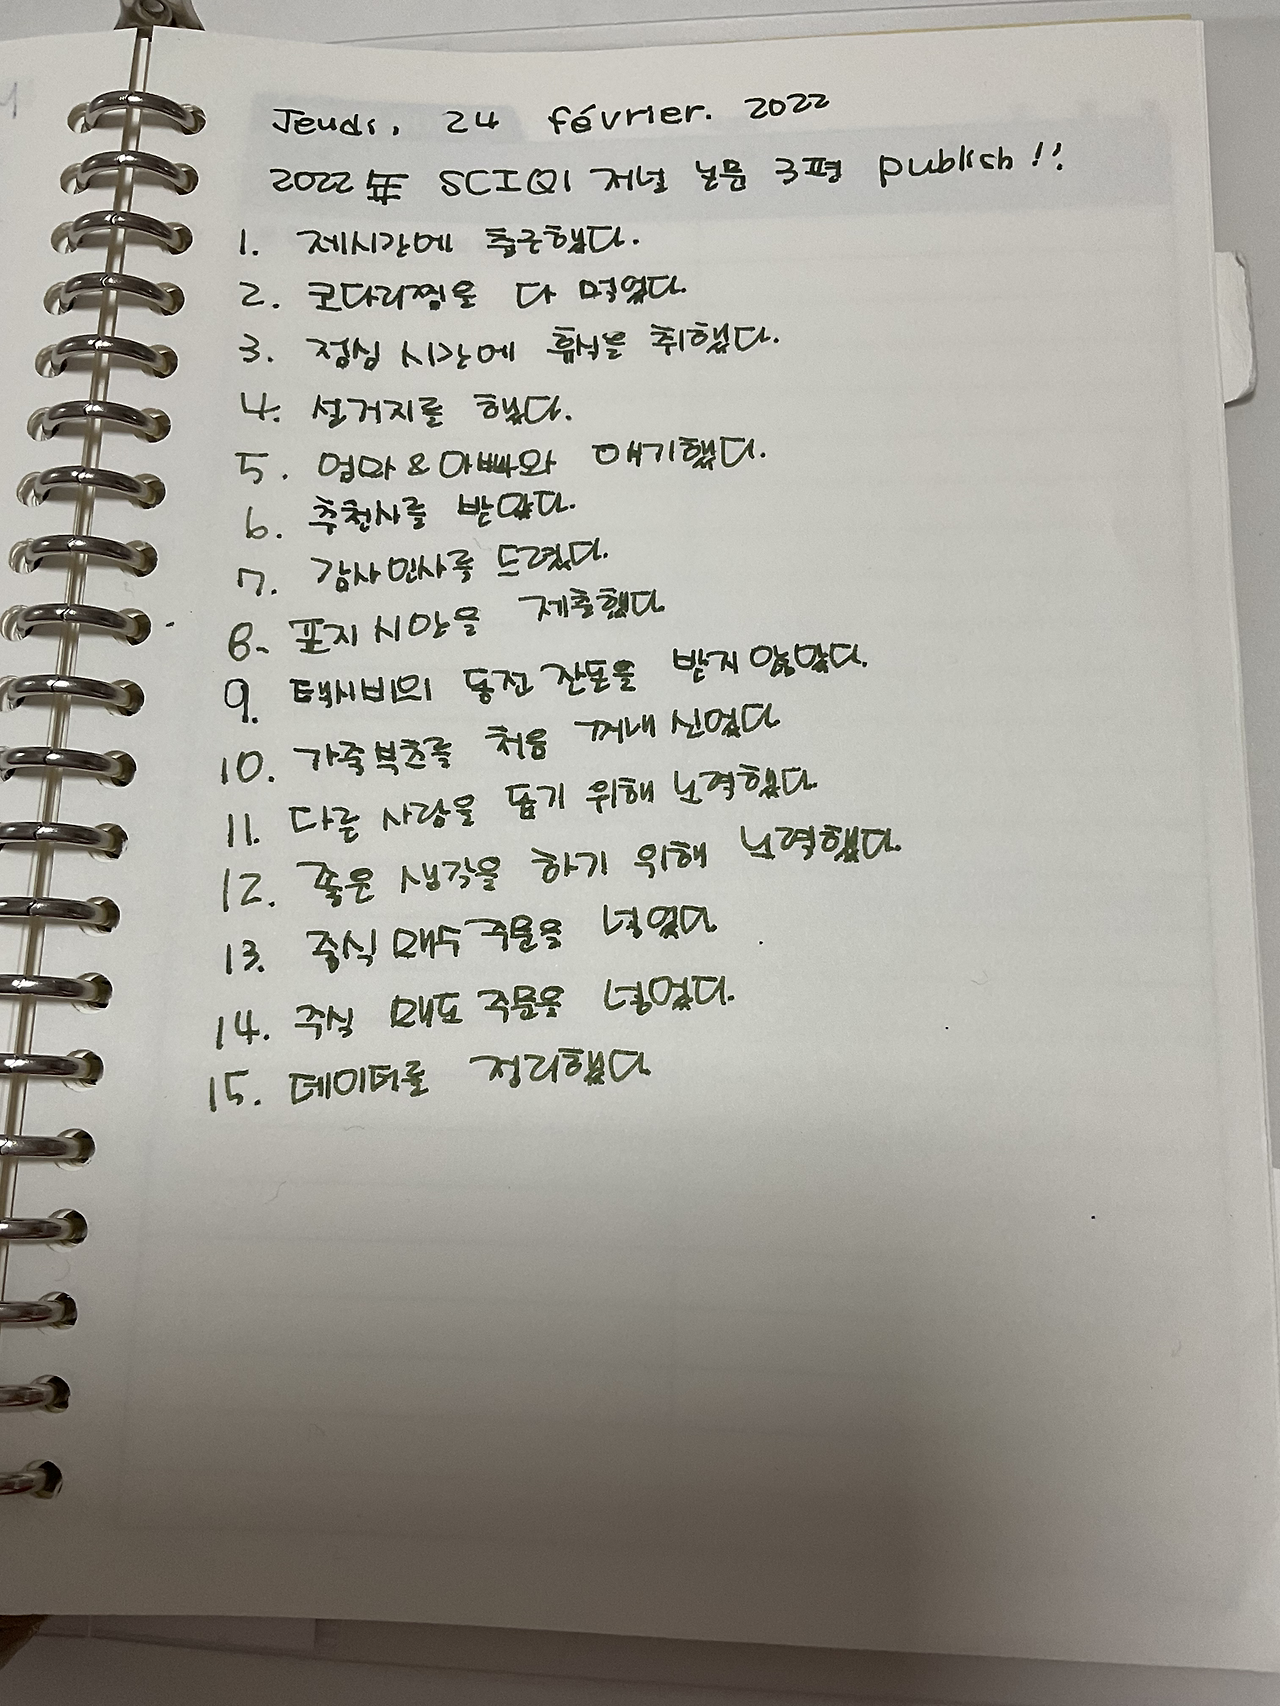 Jeudi, 24 février. 2022
2022年 SCIQ1 저널 논문 3편 publish!!
1. 제시간에 출근했다.
2. 코다리찜을 다 먹었다.
3. 점심 시간에 휴식을 취했다.
4. 설거지를 했다.
5. 엄마&아빠와 얘기했다.
6. 추천사를 받았다.
7. 감사인사를 드렸다.
8. 표지 시안을 제출했다
9. 택시비의 동전 잔돈을 받지 않았다.
10. 가죽부츠를 처음 꺼내 신었다
11. 다른 사람을 돕기 위해 노력했다
12. 좋은 생각을 하기 위해 노력했다.
13. 주식 매수 주문을 넣었다
14. 주식 매도 주문을 넣었다.
15. 데이터를 정리했다